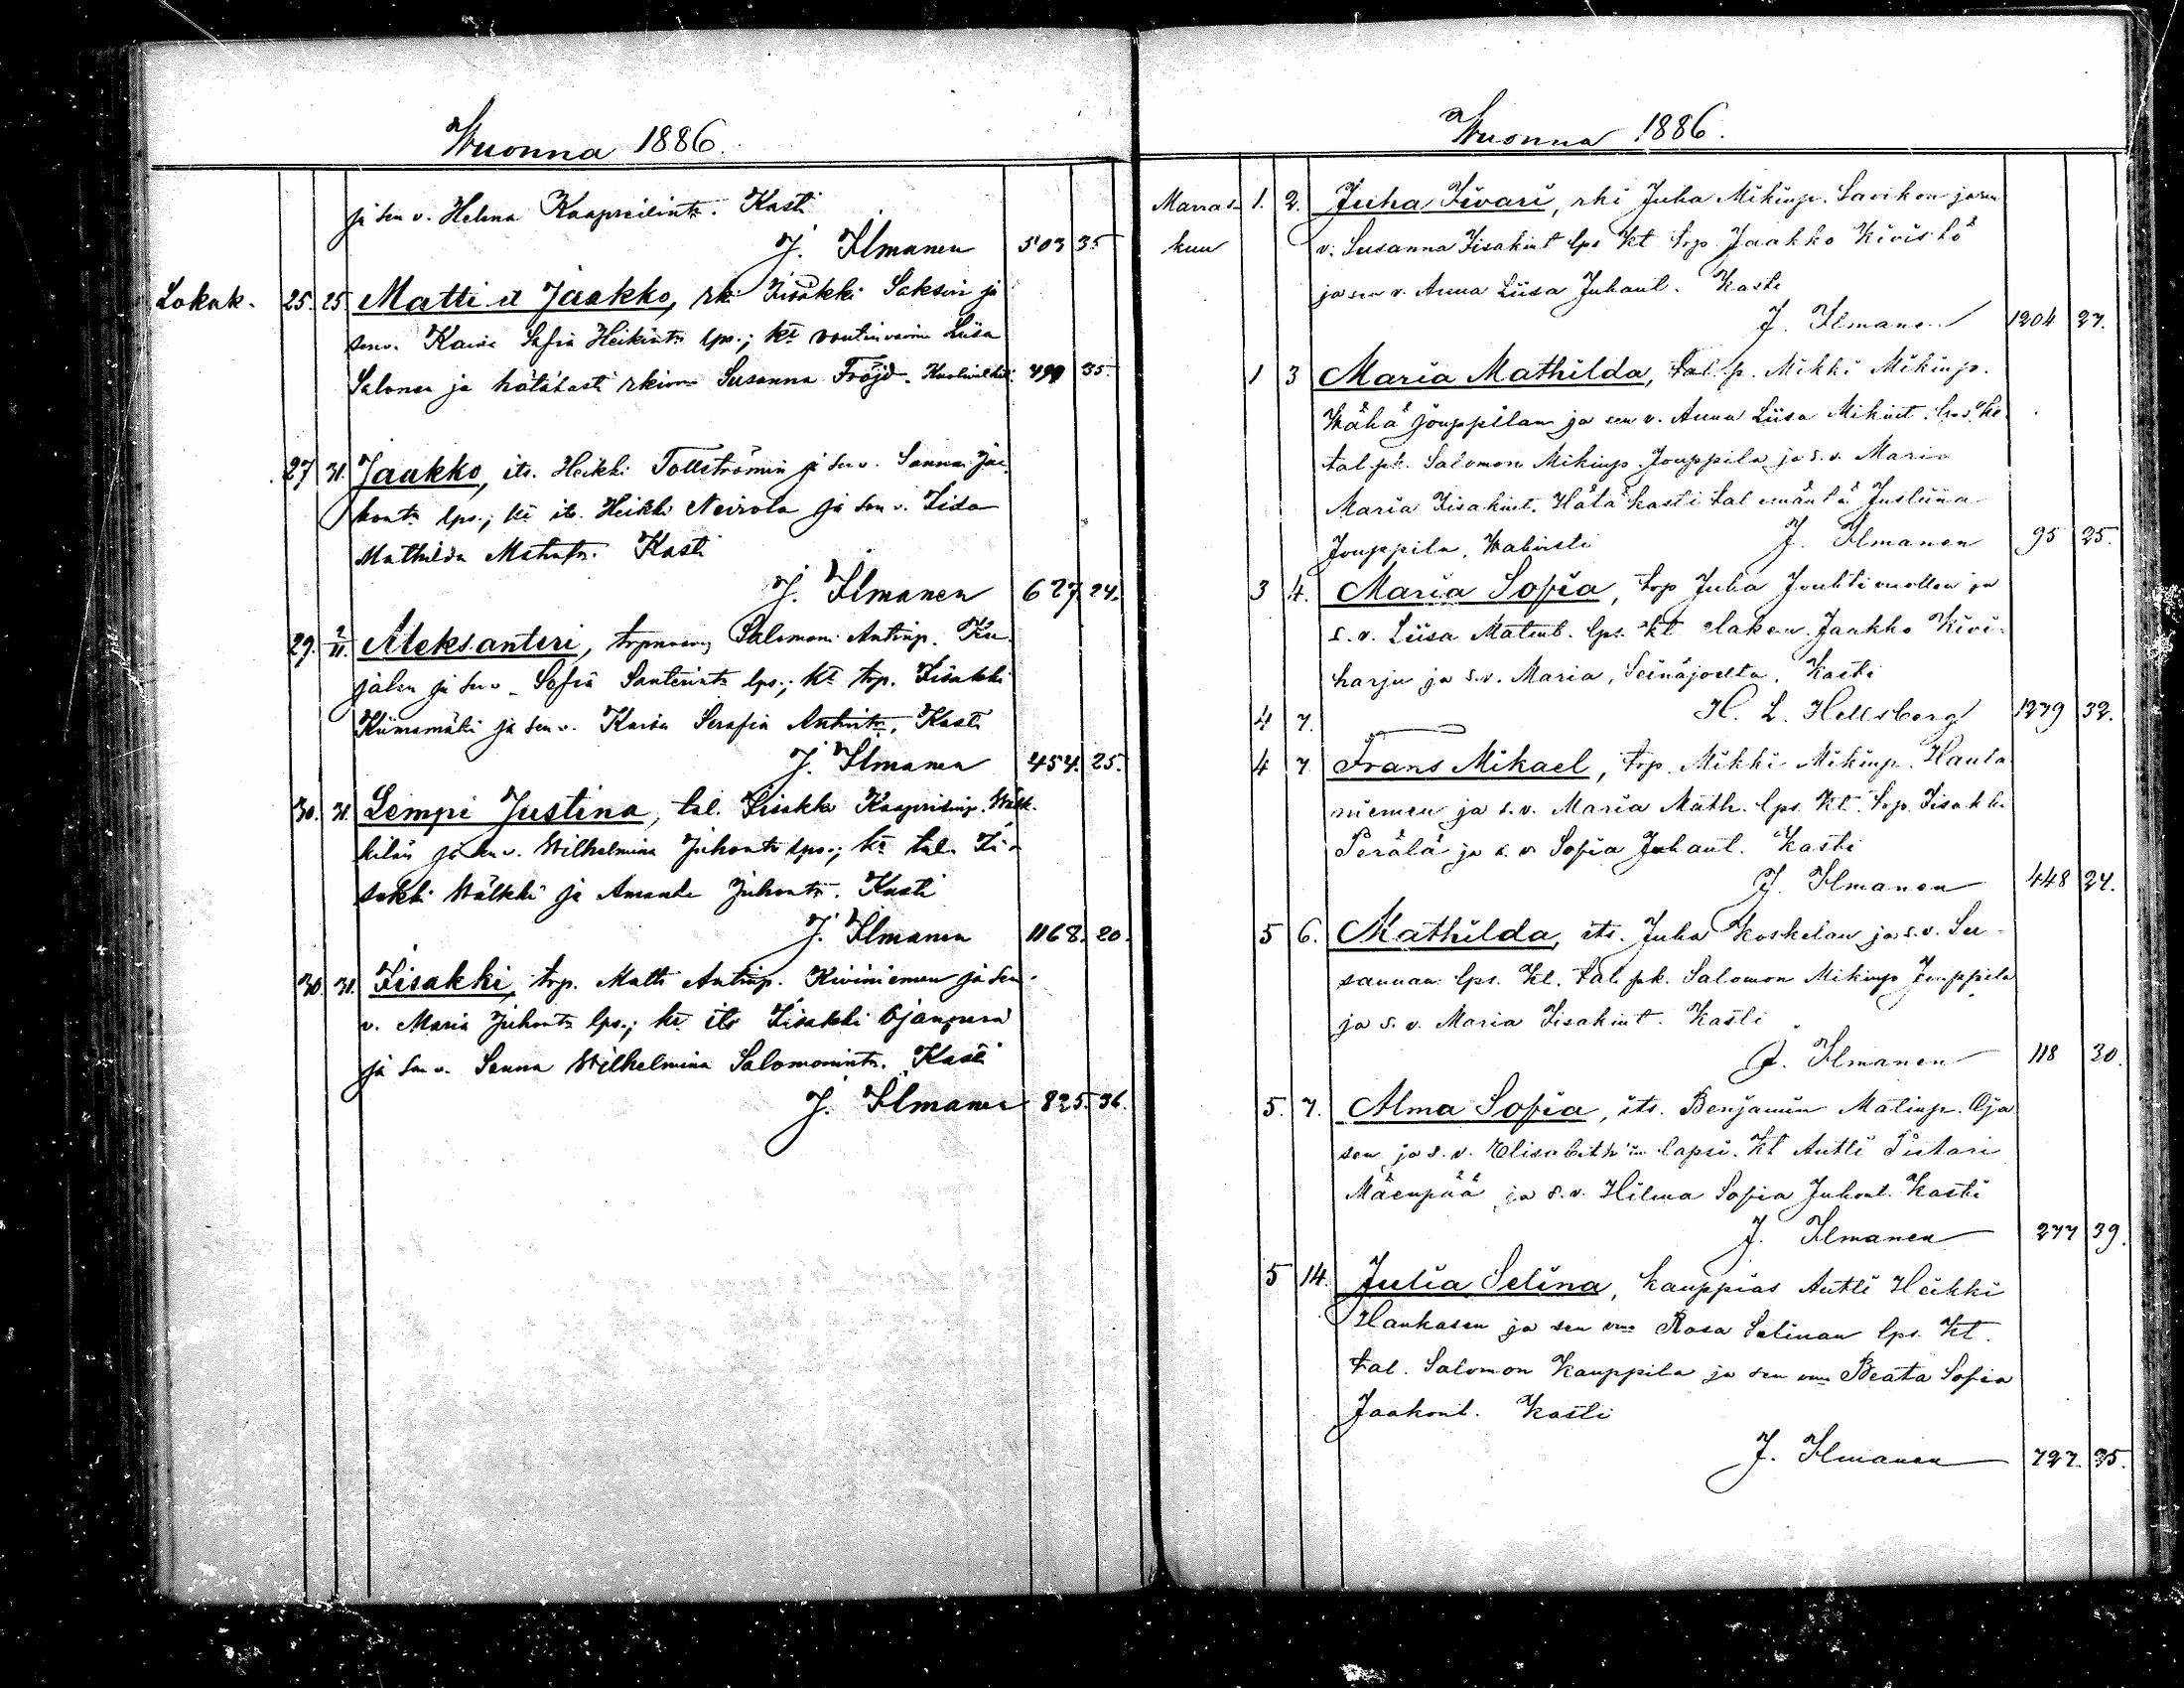 Wuonna 1886.
ja sen v. Helena Kaapreilintr. Kasti
J. Ilmanen 503 35
Lokak. 25. 25. Matti a Jaakko, rki Iisakki Saksin ja
sen v. Kaisa Sofia Heikintr. lps.; kt Liisa
Salonen ja hätäkasti Susanna Fröjd. 499 35.
27 31. Jaakko, its. Heikki Tollströmin ja sen v. Sanna Jaa-
kontr. lps.; kt its. Heikki Neirola ja sen v. Iida
Mathilda Matintr. Kasti
J. Ilmanen 627 24.
29. 2/11. Aleksanteri, Salomoni Antinp. Ku-
jalan ja sen v. Sofia Santerintr. lps.; kt trp. Iisakki
Kiimamäki ja sen v. Kaisa Serafia Antintr. Kasti
J. Ilmanen 454. 25.
30. 31. Lempi Justina, tal. Iisakki Kaaprielinp. Wälk-
kilän ja sen v. Wilhelmina Juhontr. lps.; kt tal. Ii-
sakki Wälkki ja Amanda Juhontr. Kasti
J. Ilmanen 1168. 20.
30. 31. Iisakki, trp. Matti Antinp. Kiviniemen ja sen
v. Maria Juhontr. lps.; kt its Iisakki Ojanperä
ja sen v. Sanna Wilhelmina Salomonintr. Kasti
J. Ilmanen 825. 36.
Wuonna 1886.
Marras- 1. 2. Juha Iivari, rki Juha Mikinp. Savikon ja sen
kuu v. Susanna Iisakint lps kt trp. Jaakko Kivistö
ja sen v. Anna Liisa Juhant. Kasti
J. Ilmanen 1204 27.
1 3 Maria Mathilda, tal. p. Mikki Mikinp.
Wähä Jouppilan ja sen v. Anna Liisa Mikint. lps kt
tal. pk. Salomon Mikinp. Jouppila ja s. v. Maria
Maria Iisakint. Hätä kasti tal emäntä Justiina
Jouppila. Wahvisti J. Ilmanen 95 25.
3 4. Maria Sofia, trp Juha Jouhtimollen ja
s. v. Liisa Matint. lps. kt Jaakko Kivi-
harju ja s. v. Maria, Seinäjoelta. Kasti
4 7. H. L. Hellsberg 1279 32.
4 7 Frans Mikael, trp. Mikki Mikinp. Hauta
niemen ja s. v. Maria Math. lps. kt. trp. Iisakki
Perälä ja s. v. Sofia Juhant. Kasti
J. Ilmanen 448 24.
5 6. Mathilda, its. Juha Koskelan ja s. v. Su-
sannan lps. kt. tal. pk. Salomon Mikinp Jouppila
ja s. v. Maria Iisakint. Kasti
J. Ilmanen 118 30.
5. 7. Alma Sofia, its. Benjamin Matinp. Oja
sen ja s. v. Elisabeth'in lapsi. kt Antti Pistari
Mäenpää ja s. v. Hilma Sofia Juhont. Kasti
J. Ilmanen 277 39.
5 14. Julia Selina, kauppias Antti Heikki
Haukasen ja sen vmo Rosa Selinan lps. kt.
tal. Salomon Kauppila ja sen vmo Beata Sofia
Jaakont. Kasti
J. Ilmanen 727. 35.